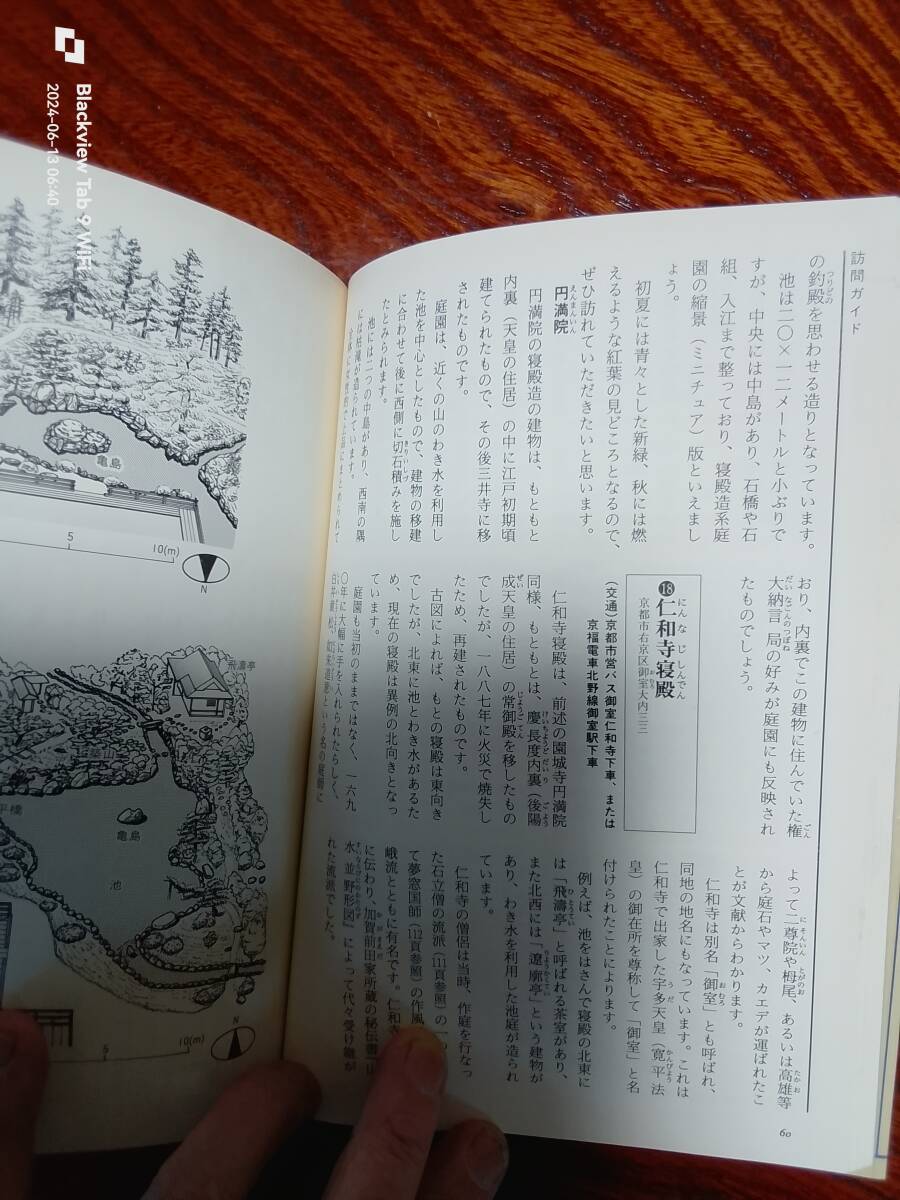 Blackview Tab 9 WiFi
2024-06-13 06:40
訪問ガイド
の釣殿を思わせる造りとなっています。
池は二〇×一二メートルと小ぶりで
すが、中央には中島があり、石橋や石
組、入江まで整っており、寝殿造系庭
園の縮景（ミニチュア）版といえまし
ょう。
初夏には青々とした新緑、秋には燃
えるような紅葉の見どころとなるので、
ぜひ訪れていただきたいと思います。
円満院
円満院の寝殿造の建物は、もともと
内裏（天皇の住居）の中に江戸初期頃
建てられたもので、その後三井寺に移
されたものです。
庭園は、近くの山のわき水を利用し
た池を中心としたもので、建物の移建
に合わせて後に西側に切石積みを施し
たとみられます。
池には二つの中島があり、西南の隅
には枯滝が造られています。
おり、内裏でこの建物に住んでいた権
大納言局の好みが庭園にも反映され
たものでしょう。
⑱仁和寺寝殿
京都市右京区御室大内三三
（交通）京都市営バス御室仁和寺下車、または
京福電車北野線御室駅下車
仁和寺寝殿は、前述の園城寺円満院
同様、もともとは、慶長度内裏（後陽
成天皇の住居）の常御殿を移したもの
でしたが、一八八七年に火災で焼失し
たため、再建されたものです。
古図によれば、もとの寝殿は東向き
でしたが、北東に池とわき水があるた
め、現在の寝殿は異例の北向きとなっ
ています。
庭園も当初のままではなく、一六九
〇年に大幅に手を入れられたらしく、
よって二尊院や栂尾、あるいは高雄等
から庭石やマツ、カエデが運ばれたこ
とが文献からわかります。
仁和寺は別名「御室」とも呼ばれ、
同地の地名にもなっています。これは
仁和寺で出家した宇多天皇（寛平法
皇）の御在所を尊称して「御室」と名
付けられたことによります。
例えば、池をはさんで寝殿の北東に
は「飛濤亭」と呼ばれる茶室があり、
また北西には「遼廓亭」という建物が
あり、わき水を利用した池庭が造られ
ています。
仁和寺の僧侶は当時、作庭を行なっ
た石立僧の流派（111頁参照）の一つ
て夢窓国師（112頁参照）の作風
峨流とともに有名です。仁和寺
に伝わり、加賀前田家所蔵の秘伝書『山
水並野形図』によって代々受け継が
れた流派でした。
60
亀島
5
10(m)
N
飛濤亭
亀島
池
10(m)